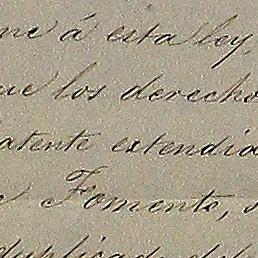 me á esta ley,
ue los derecho
atente extendid
Fomento,
duplicado